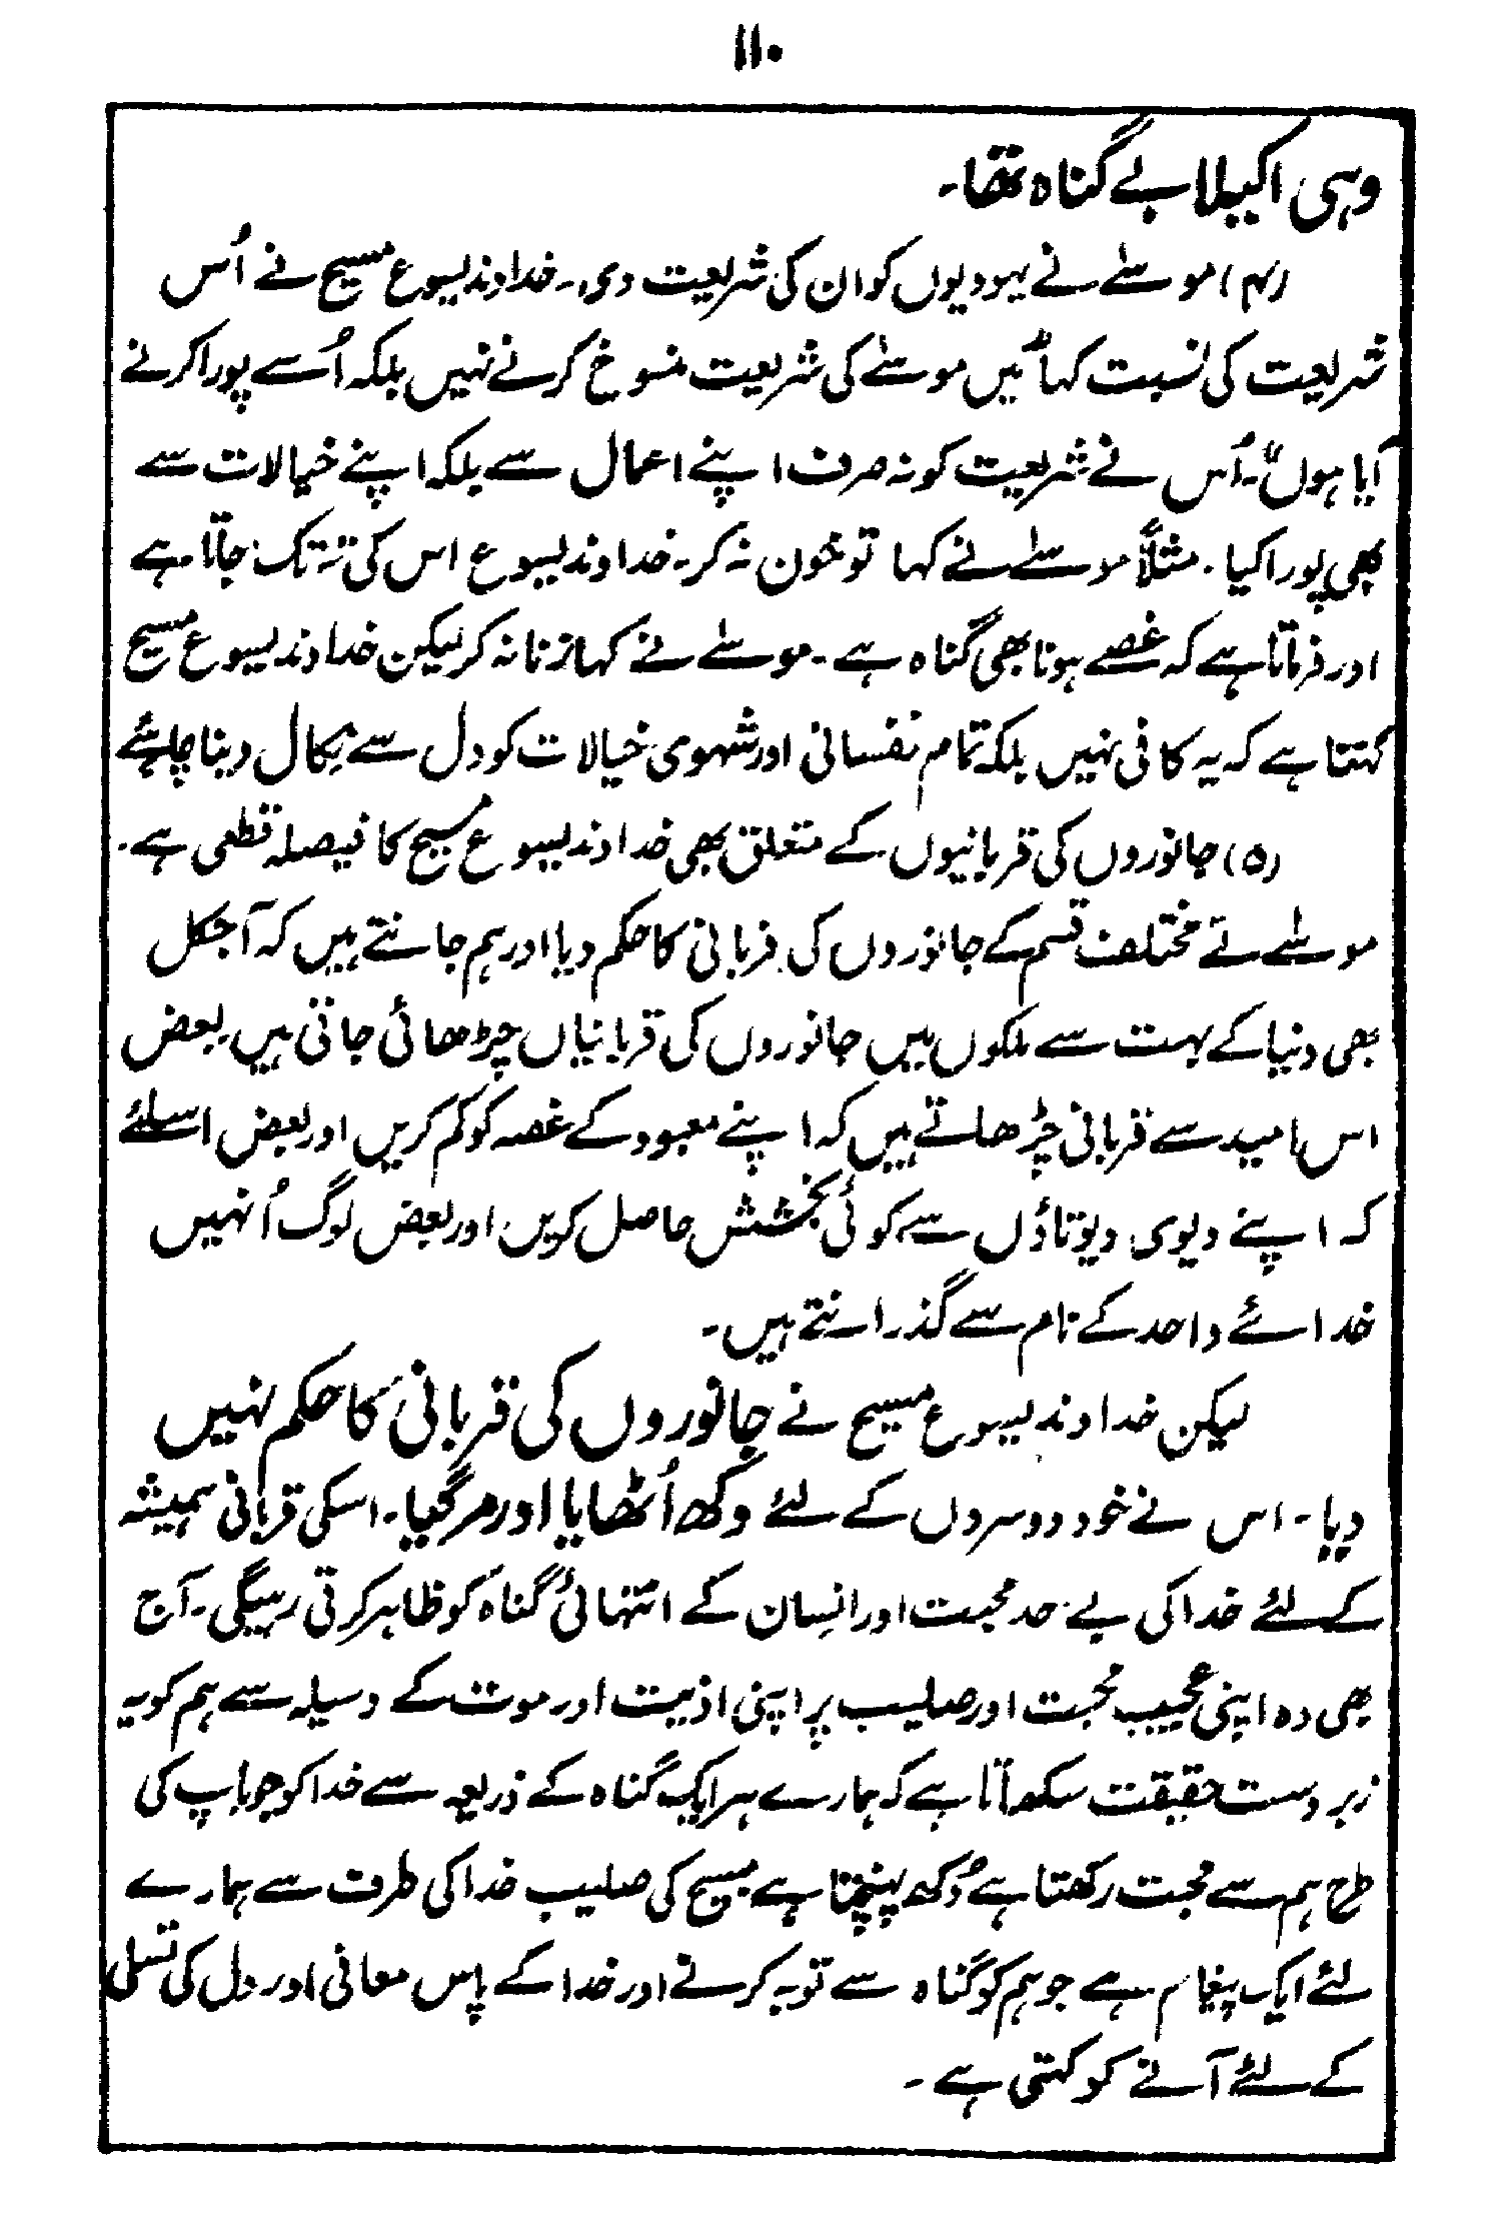 ۱۱۰
وہی اکیلا بے گناہ تھا۔
(۴) موسےٰ نے یہودیوں کو ان کی شریعت دی۔ خداوند یسوع مسیح نے اُس
شریعت کی نسبت کہا "میں موسےٰ کی شریعت منسوخ کرنے نہیں بلکہ اُسے پورا کرنے
آیا ہوں"۔ اُس نے شریعت کو نہ صرف اپنے اعمال سے بلکہ اپنے خیالات سے
بھی پورا کیا۔ مثلاً موسےٰ نے کہا تو خون نہ کر۔ خداوند یسوع اس کی تہ تک جاتا ہے
اور فرماتا ہے کہ غصے ہونا بھی گناہ ہے۔ موسےٰ نے کہا زنا نہ کر لیکن خداوند یسوع مسیح
کہتا ہے کہ یہ کافی نہیں بلکہ تمام نفسانی اور شہوی خیالات کو دل سے نکال دینا چاہئے
(۵) جانوروں کی قربانیوں کے متعلق بھی خداوند یسوع مسیح کا فیصلہ قطعی ہے۔
موسےٰ نے مختلف قسم کے جانوروں کی قربانی کا حکم دیا اور ہم جانتے ہیں کہ آجکل
بھی دنیا کے بہت سے ملکوں میں جانوروں کی قربانیاں چڑھائی جاتی ہیں بعض
اس امید سے قربانی چڑھاتے ہیں کہ اپنے معبود کے غصہ کو کم کریں اور بعض اسلئے
کہ اپنے دیوی دیوتاؤں سے کوئی بخشش حاصل کریں اور بعض لوگ اُنہیں
خدائے واحد کے نام سے گذرانتے ہیں۔
لیکن خداوند یسوع مسیح نے جانوروں کی قربانی کا حکم نہیں
دیا۔ اس نے خود دوسروں کے لئے دکھ اُٹھایا اور مر گیا۔ اسکی قربانی ہمیشہ
کے لئے خدا کی بے حد محبت اور انسان کے انتہائی گناہ کو ظاہر کرتی رہیگی۔ آج
بھی وہ اپنی عجیب محبت اور صلیب پر اپنی اذیت اور موت کے وسیلہ سے ہم کو یہ
زبردست حقیقت سکھاتا ہے کہ ہمارے ہر ایک گناہ کے ذریعہ سے خدا کو جو باپ کی
طرح ہم سے محبت رکھتا ہے دُکھ پہنچتا ہے مسیح کی صلیب خدا کی طرف سے ہمارے
لئے ایک پیغام ہے جو ہم کو گناہ سے توبہ کرنے اور خدا کے پاس معافی اور دل کی تسلی
کے لئے آنے کو کہتی ہے۔